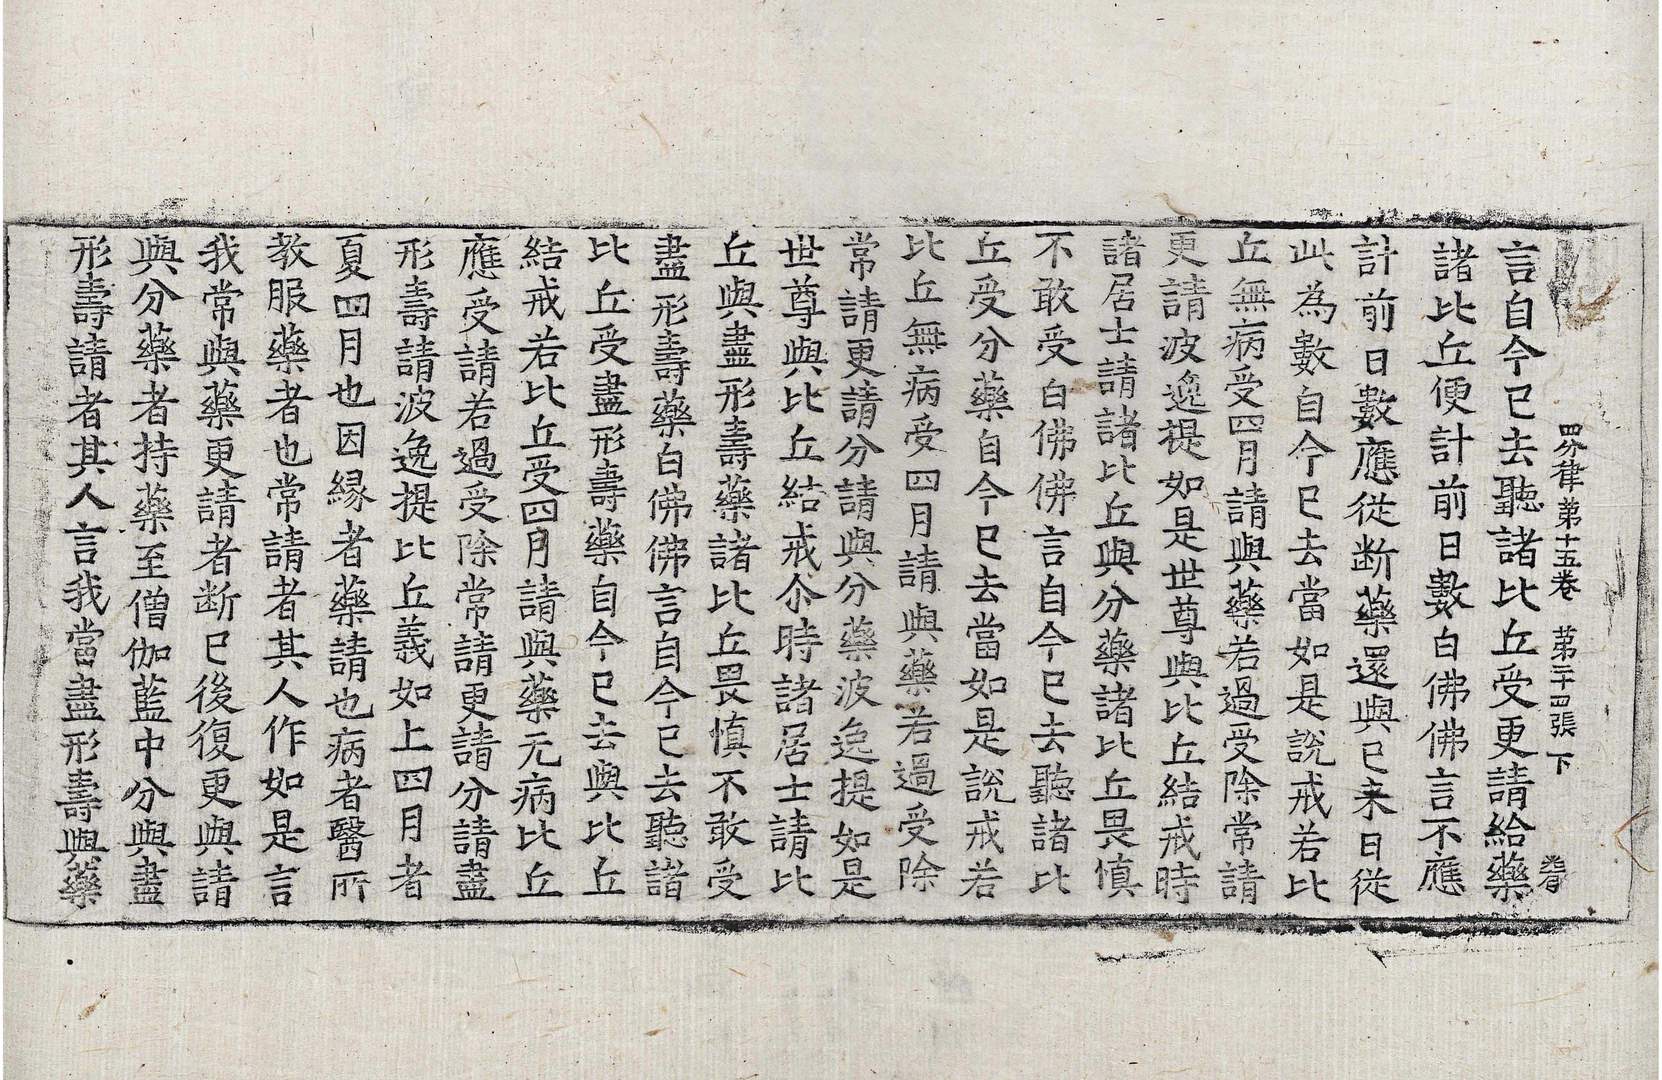 四分律第十五卷 第二十四張 下
言自今已去聽諸比丘受更請給藥
諸比丘便計前日數白佛佛言不應
計前日數應從断藥還與已来日從
此為數自今已去當如是說戒若比
丘無病受四月請與藥若過受除常請
更請波逸提如是世尊與比丘結戒時
諸居士請諸比丘與分藥諸比丘畏慎
不敢受白佛佛言自今已去聽諸比
丘受分藥自今已去當如是說戒若
比丘無病受四月請與藥若過受除
常請更請分請與分藥波逸提如是
世尊與比丘結戒尒時諸居士請比
丘與盡形壽藥諸比丘畏慎不敢受
盡形壽藥白佛佛言自今已去聽諸
比丘受盡形壽藥自今已去與比丘
結戒若比丘受四月請與藥无病比丘
應受請若過受除常請更請分請盡
形壽請波逸提比丘義如上四月者
夏四月也因縁者藥請也病者醫所
教服藥者也常請者其人作如是言
我常與藥更請者断已後復更與請
與分藥者持藥至僧伽藍中分與盡
形壽請者其人言我當盡形壽與藥